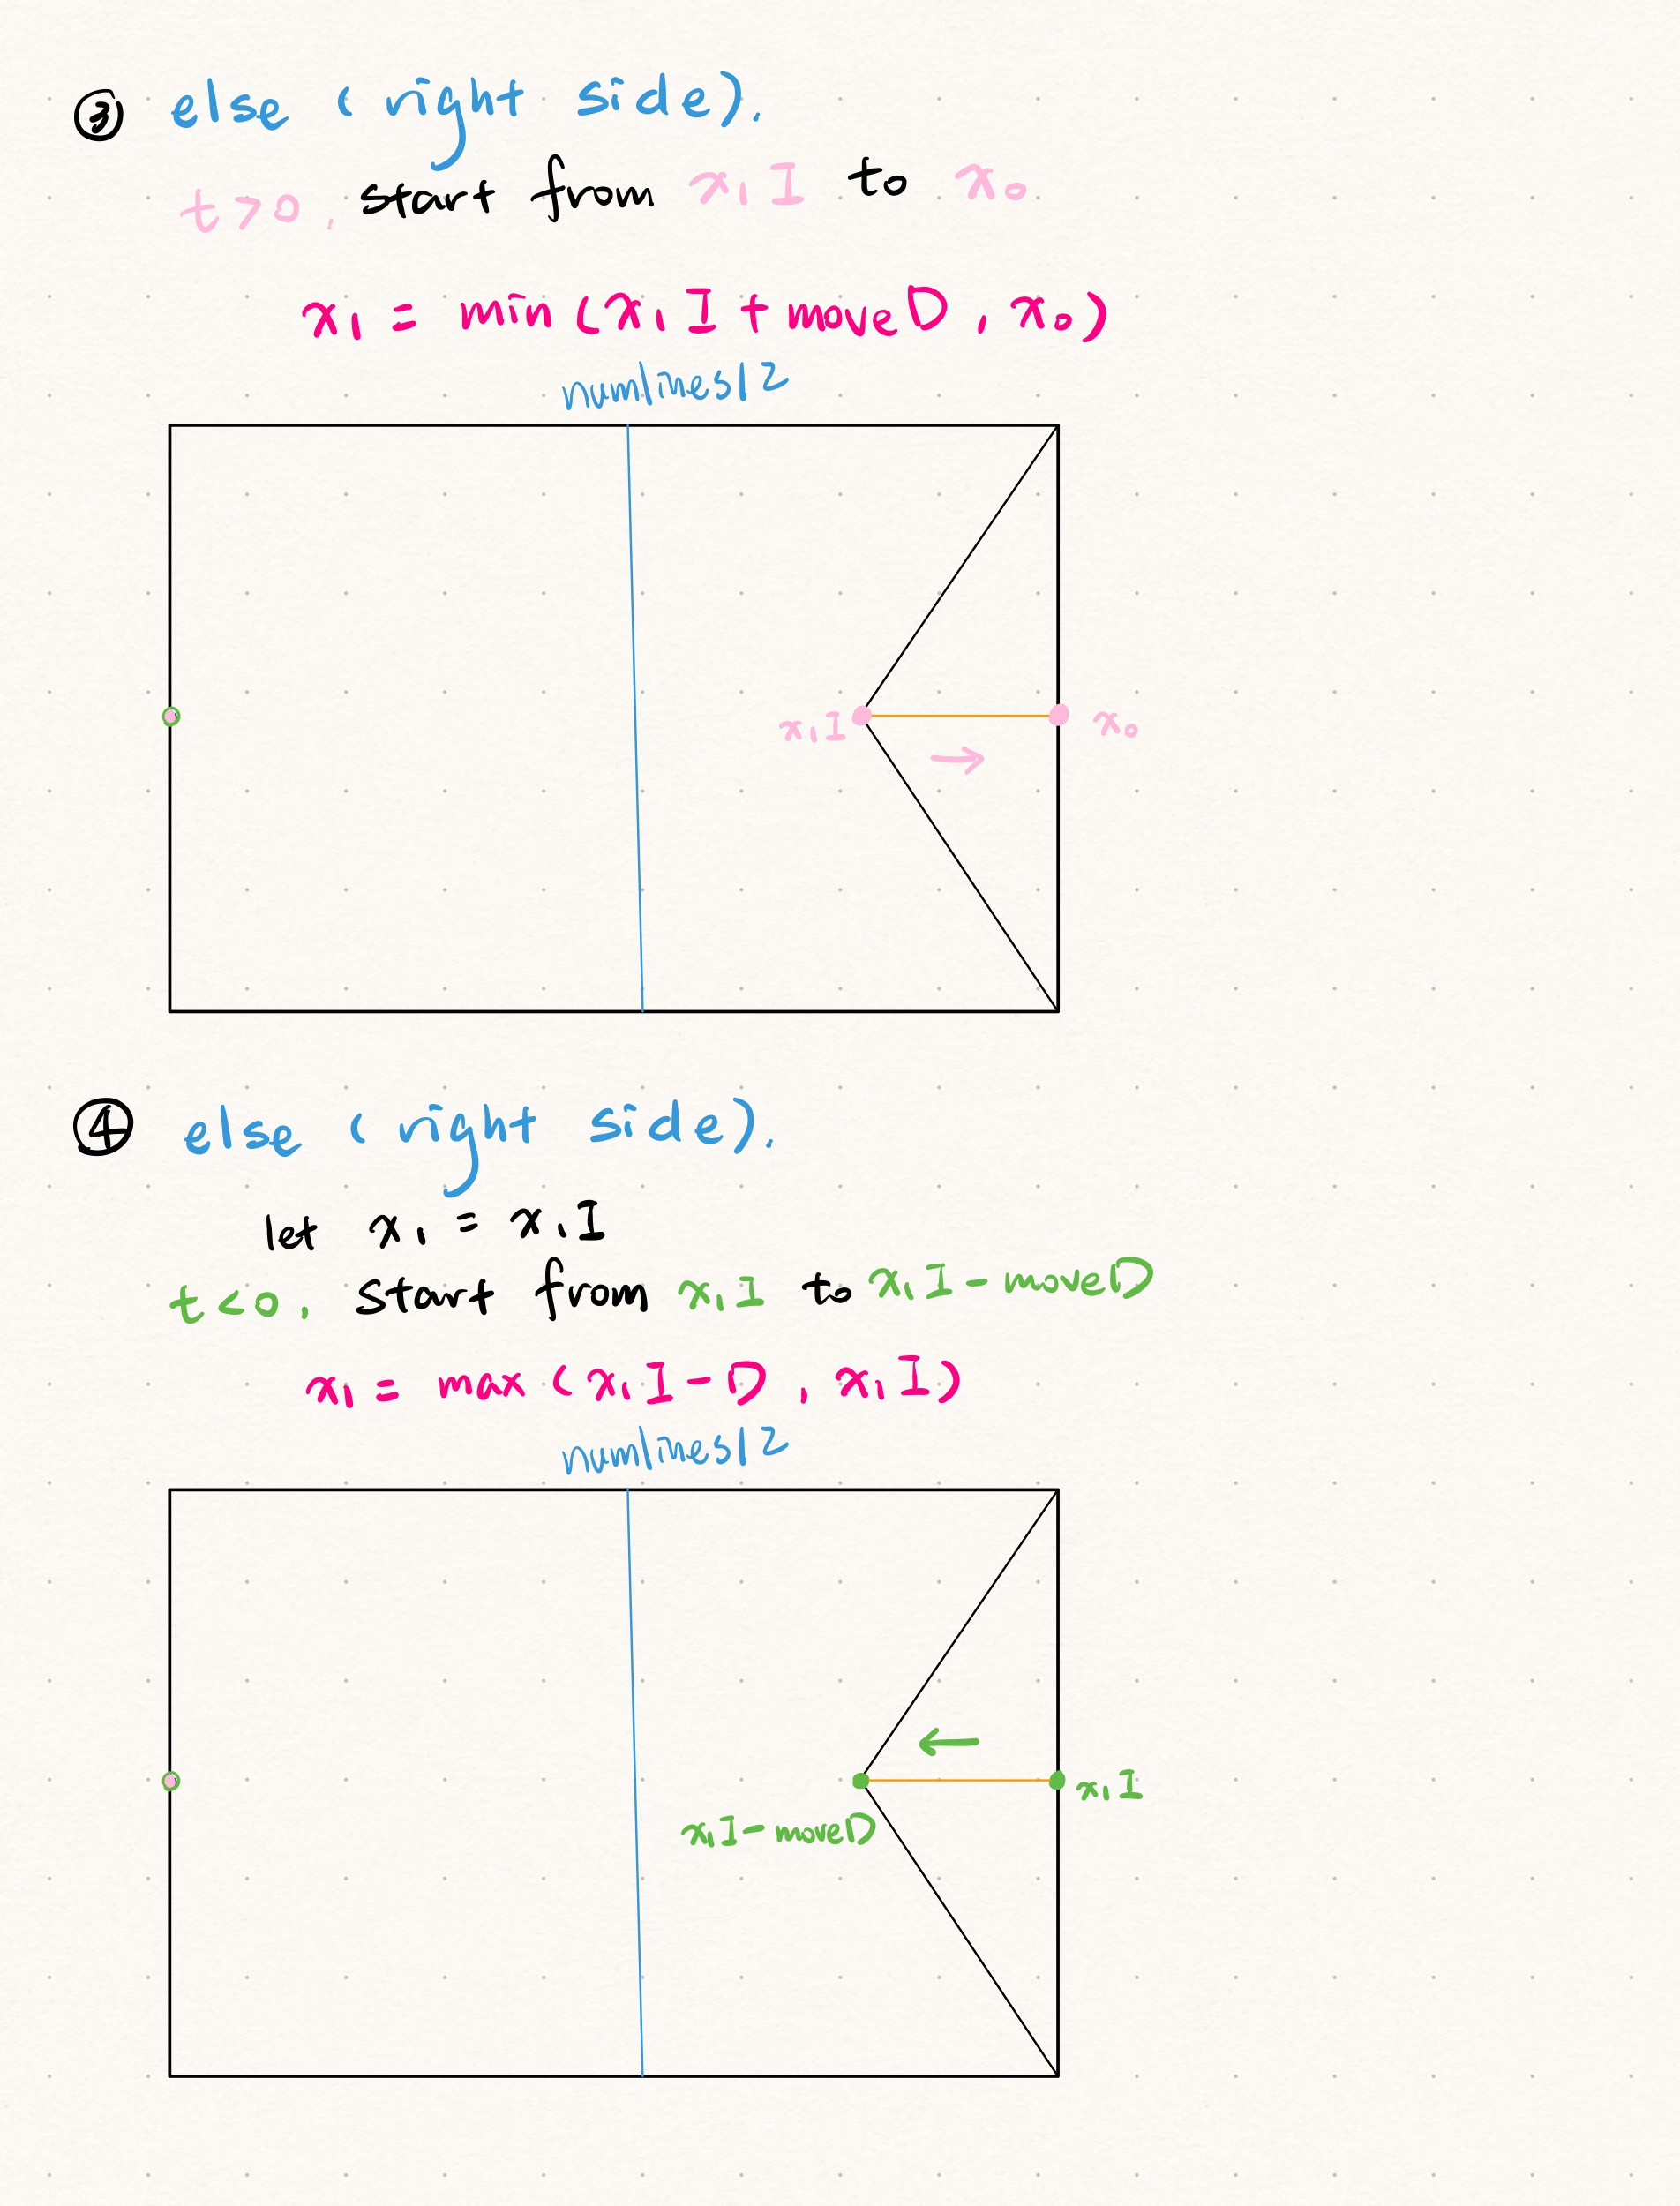 ③ else (right side).
t>0, start from x₁I to x₀
x₁ = min (x₁I + moveD, x₀)
numlines/2
x₁I
→
x₀
④ else (right side).
let x₁ = x₁I
t<0, start from x₁I to x₁I - moveD
x₁ = max (x₁I - D, x₁I)
numlines/2
←
x₁I
x₁I - moveD